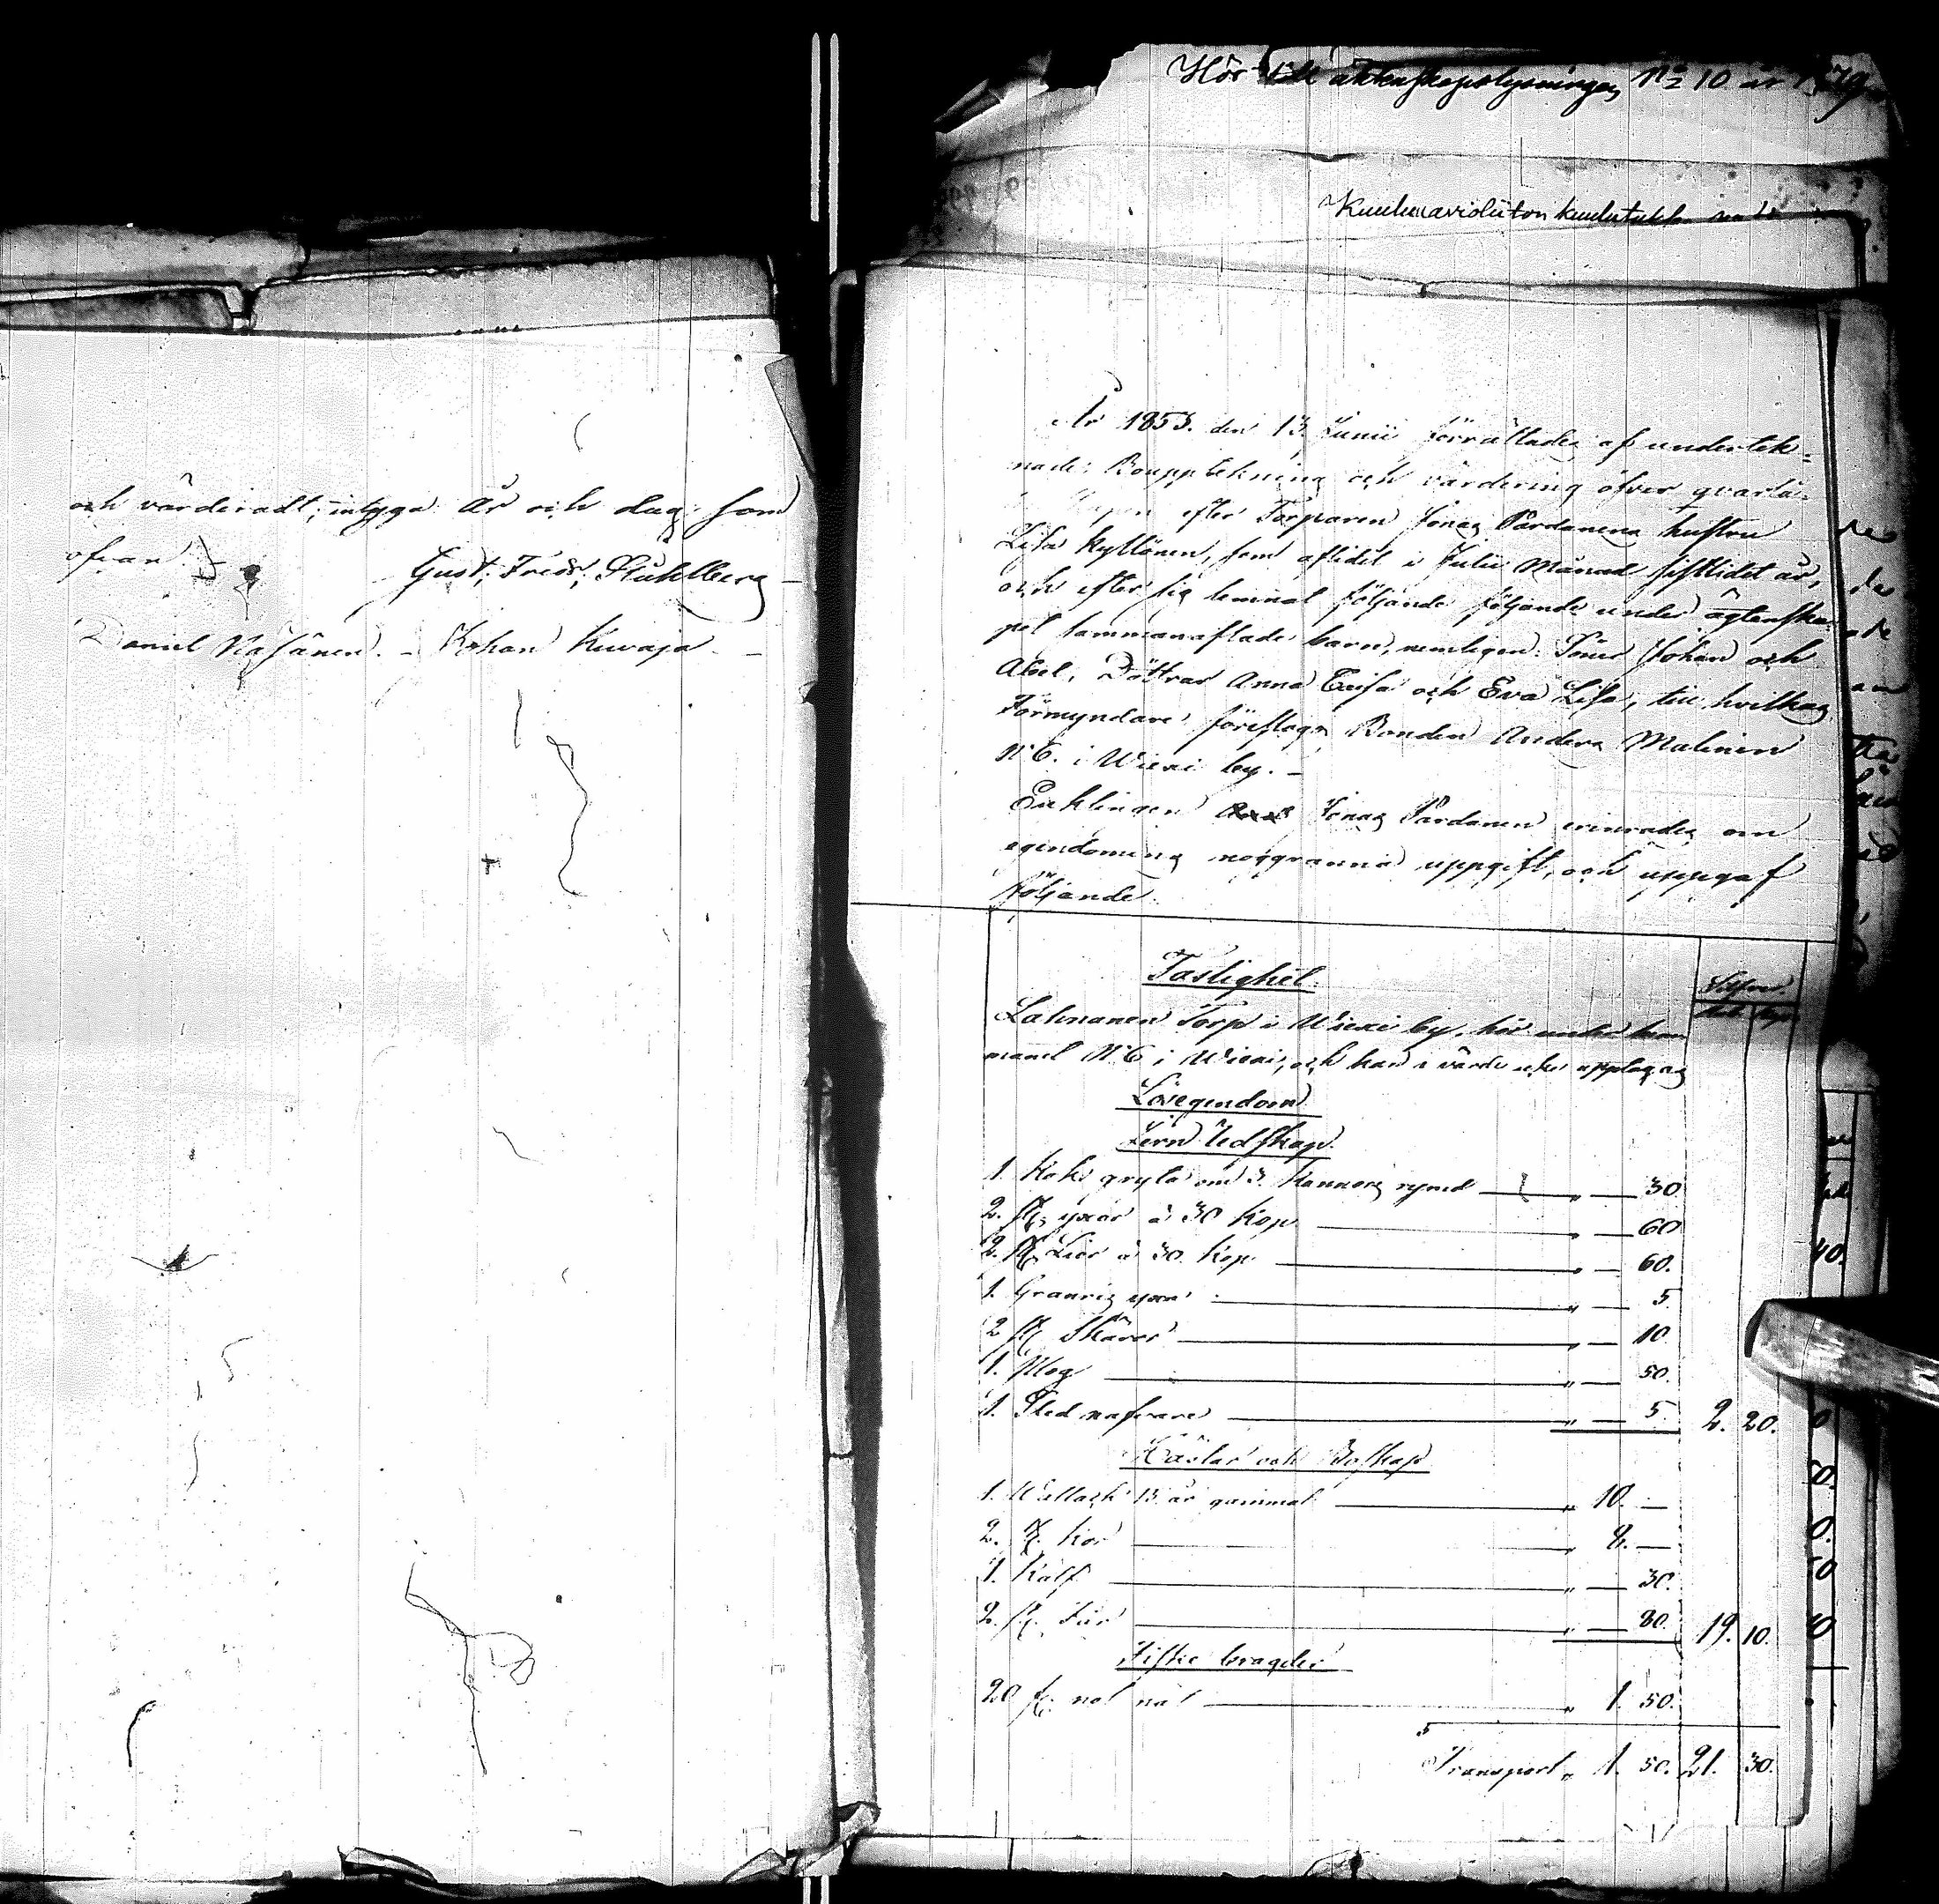 och värderadt, intyga År och dag som
ofvan.
Gust. Fredr. Stuhlberg
Daniel Väsänen. Johan Kuvaja
Hör till äktenskapslysningen No 10 år 1879
Kuuluu avioliiton kuulutukseen
År 1853. den 13. Junii förrättades af undertek-
nade: Bouppteckning och värdering öfver qvarlå-
efter Torparen Jonas Pardanens hustru
Lisa Kyllönen, som aflidit i Julii Månad sistlidet år,
och efter sig lemnat följande följande under ägtenska-
pet sammanaflade barn, nemligen: Söner Johan och
Abel, Döttrar Anna Caisa och Eva Lisa, till hvilkas
Förmyndare föreslags Bonden Anders Malinen
N 6. i Wiexi by. -
Enklingen Jonas Pardanen erinrades om
egendomens noggranna uppgift, och uppgaf
följande.
Fastighet.
Silfver.
Rub. Kop.
Lahnanen Torp i Wiexi by, hör under hem
manet N 6 i Wiexi, och kan i värde icke upptagas
Lösegendom
Jern Redskap.
1. Kok gryta om 3. Kannors rymd " — 30
2. st. yxor à 30 Kop. " — 60
2. st. Liar à 30. Kop. " — 60.
1. Granris yxa " — 5.
2 st. Skäror " — 10.
1. Plog " — 50.
1. Sked nafvare " — 5. 2. 20.
Hästar och Boskap
1. Wallack 13 år gammal " 10. —
2. st. Kor " 8. —
1. Kalf " — 30.
2. st. Får " — 80. 19. 10.
Fiske bragder
20 st. not nät " 1. 50.
Transport " 1. 50. 21. 30.